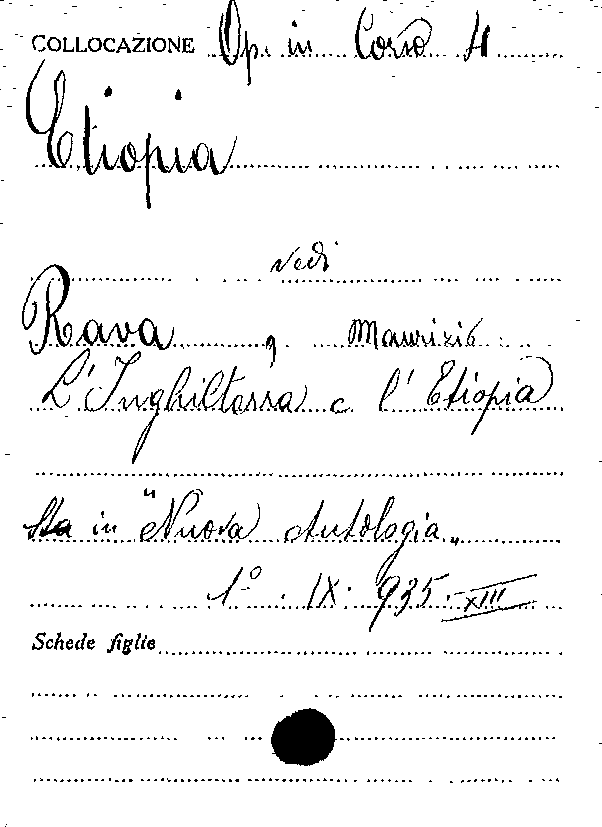 COLLOCAZIONE Op. in Corso 41
Etiopia
vedi
Rava, Maurizio
L'Inghilterra e l'Etiopia
Sta in "Nuova Antologia„
1º. IX. 935. XIII
Schede figlie